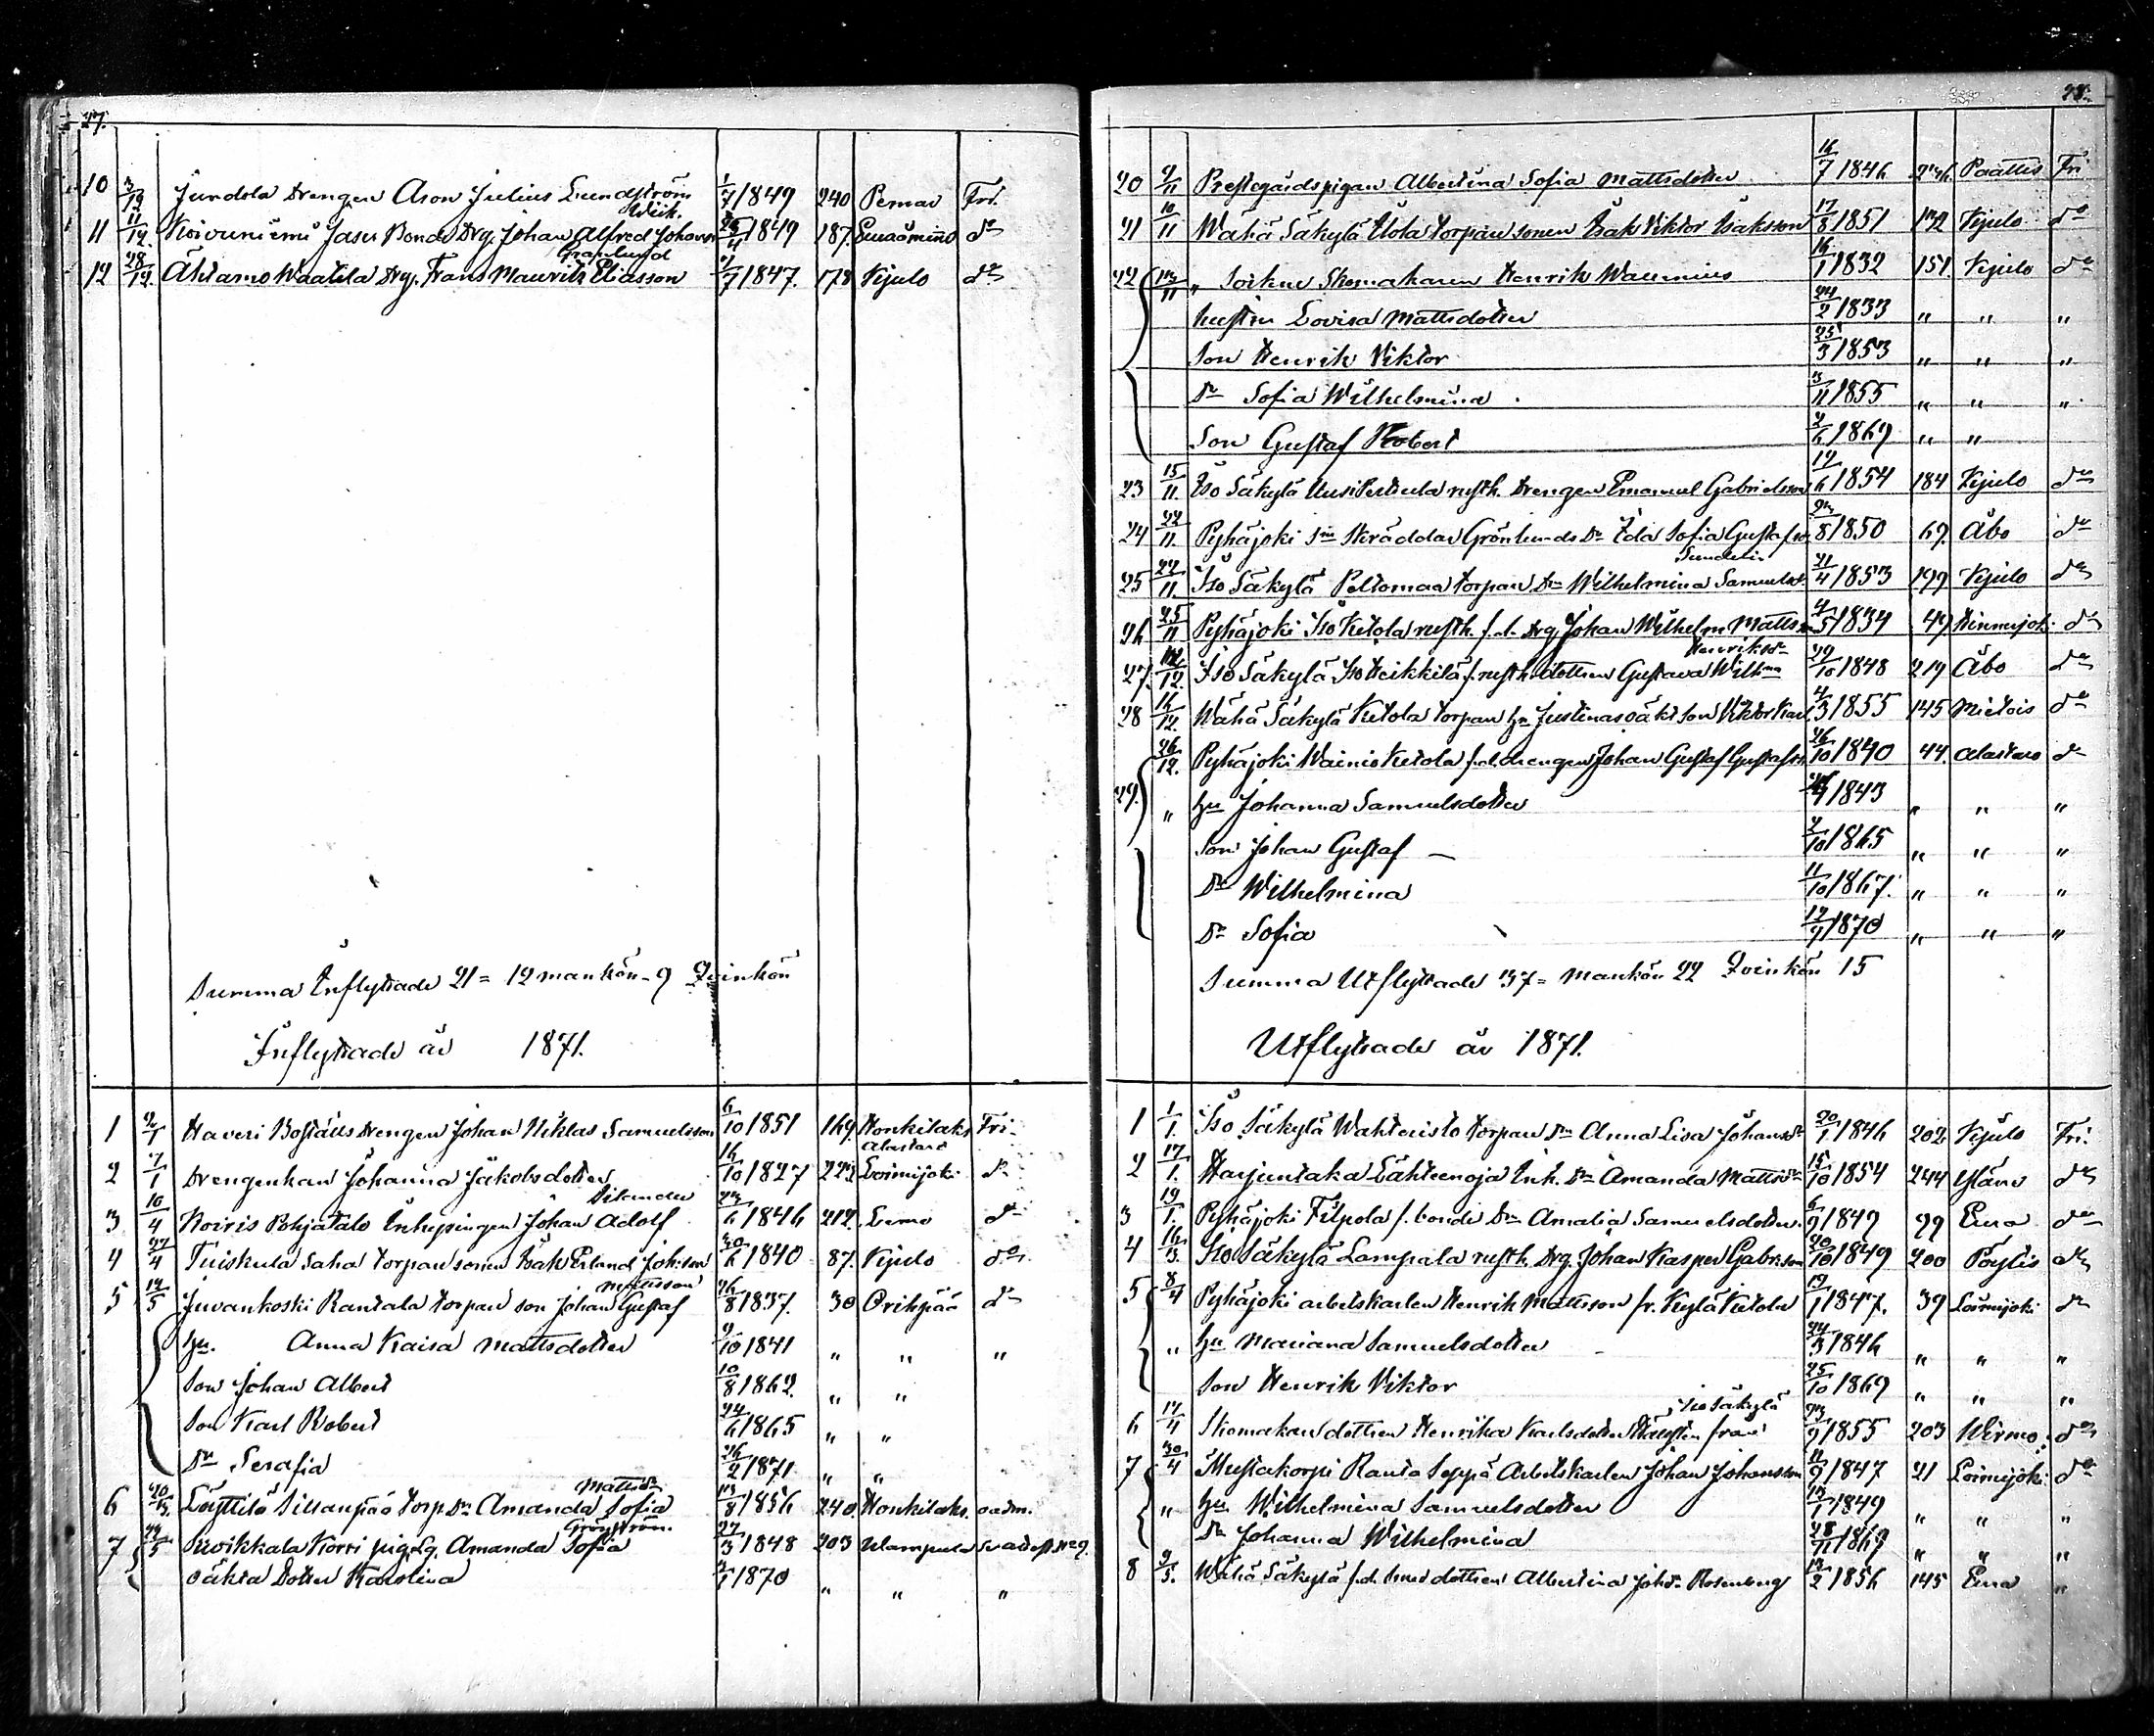 27.
10 3/12 Jundola Drengen Aron Julius Lundström 1/7 1849 240 Pemar Fri.
Wiik.
11 11/12. Koivuniemi Jaser Bonde Drg. Johan Alfred Johanss 1849 187. Euraåminne do
Granlund
12 28/12. Ähtamo Waatela Drg. Frans Mauritz Eliasson 1847. 178 Kjulo do
Summa Inflyttade 21 = 12 mankön - 9 Qvinkön
Inflyttade år 1871.
1 2/1 Haveri Boställs Drengen Johan Niklas Samuelsson 6/10 1851 169. Honkilaks Fri.
Alastaro
2 7/1 Drengenkan Johanna Jakobsdotter 16/10 1827 223. Loimijoki do
Silander
3 10/4 Koiris Pohjatalo Inhysingen Johan Adolf 23/6 1846 212. Lemo do
4 27/4 Tuiskula Saha torpare sonen Isak Erland Johsson 30/6 1840 87. Kjulo do
Mattsson
5 14/5 Juvankoski Rantala torpare son Johan Gustaf 26/8 1837. 30 Orihpää do
hu. Anna Kaisa Mattsdotter 10 1841 " " "
Son Johan Albert 10/8 1862. " "
Son Karl Robert 24/6 1865 " "
Dr Serafia 26/2 1871 " "
Mattsdr
6 20/5. Löyttilä Sillanpää torp. Dr Amanda Sofia 13/8 1856 240. Honkilaks. oadm.
Grönström.
7 22/5 Kuikkala Korri pig. Amanda Sofia 27/3 1848 203 Wlampula
oäkta Dotter Karolina 1870 " " "
28.
20 9/11 Prestegårdspigan Albertina Sofia Mattsdotter 16/7 1846 Paattis Fri
21 10/11 Wähä Säkylä Uola torpare sonen Isak Viktor Isaksson 17/8 1851 132 Kjulo do
22 13/11 " Soikne Skomakaren Henrik Wallenius 16/1 1832 151. Kjulo do
hustru Lovisa Mattsdotter 24/2 1833 " " "
Son Henrik Viktor 25/3 1853 " " "
Dr Sofia Wilhelmina 11 1855 " " "
Son Gustaf Robert 6 1869 " "
23 15/11. Iso Säkylä UusiPertula rusth. Drengen Emanuel Gabrielsson 6 1854 184 Kjulo do
24 22/11. Pyhäjoki Sn Skräddar Grönlunds Dr Ida Sofia Gustafsd 23/8 1850 69. Åbo do
Sundelin
25 22/11. Iso Säkylä Peltomaa torpare Dr Wilhelmina Samuelsd. 21/4 1853 199 Kjulo do
26 25/11 Pyhäjoki Iso Ketola rusth. f.d. Drg. Johan Wilhelm Mattsson 5 1834 49 Hinnerjoki do
Henriksdr
27. 12/12. Iso Säkylä Iso Heikkilä f. rusth. dottren Gustava Wilhma 29/10 1848 219 Åbo do
28 16/12. Wähä Säkylä Ketola torpare hu Justinas oäkt son Viktor Karl 4/3 1855 145 Mietois do
29. 26/12. Pyhäjoki Wainio Ketola f.d. drengen Johan Gustaf Gustafss 26/10 1840 44. Alastaro do
" hu Johanna Samuelsdotter 1843 " " "
Son Johan Gustaf — 10 1865 " " "
Dr Wilhelmina 11/10 1867. " " "
Dr Sofia 1870 " " "
Summa Utflyttade 37 = Mankön 22 Qvinkön 15
Utflyttade år 1871.
1 1/1. Iso Säkylä Wahteristo torpare Dr Anna Lisa Johansdr 20/1 1846 202 Kjulo Fri.
2 17/1. Harjuntaka Lähteenoja Inh. Dr Amanda Mattsdr 15/10 1854 244 Yläne do
3 19/1. Pyhäjoki Filpola f. bonde Dr Amalia Samuelsdotter 6/9 1849 99 Eura do
4 16/3. Iso Säkylä Lampala rusth. Drg. Johan Kasper Gabr.son 20/10 1849 200 Pöytis do
5 8/4 Pyhäjoki arbetskarlen Henrik Mattsson fr. Kylä Ketola 19/1 1847. 39 Loimijoki do
" hu Mariana Samuelsdotter 24/3 1846 " " "
Son Henrik Viktor 25/10 1869 " " "
Iso Säkylä
6 14/4 Skomakare dottren Henrika Karlsdotter från 23/9 1855 203 Wirmo do
7 30/4 Mustakorpi Ranta Seppä Arbetskarlen Johan Johansson 9 1847 21 Loimijoki do
" hu Wilhelmina Samuelsdotter 13/1 1849 " " "
Dr Johanna Wilhelmina 28/11 1869 " " "
8 9/5. Wähä Säkylä f.d. dottren Albertina Johdr Rosenberg 12/2 1856 145 Eura "